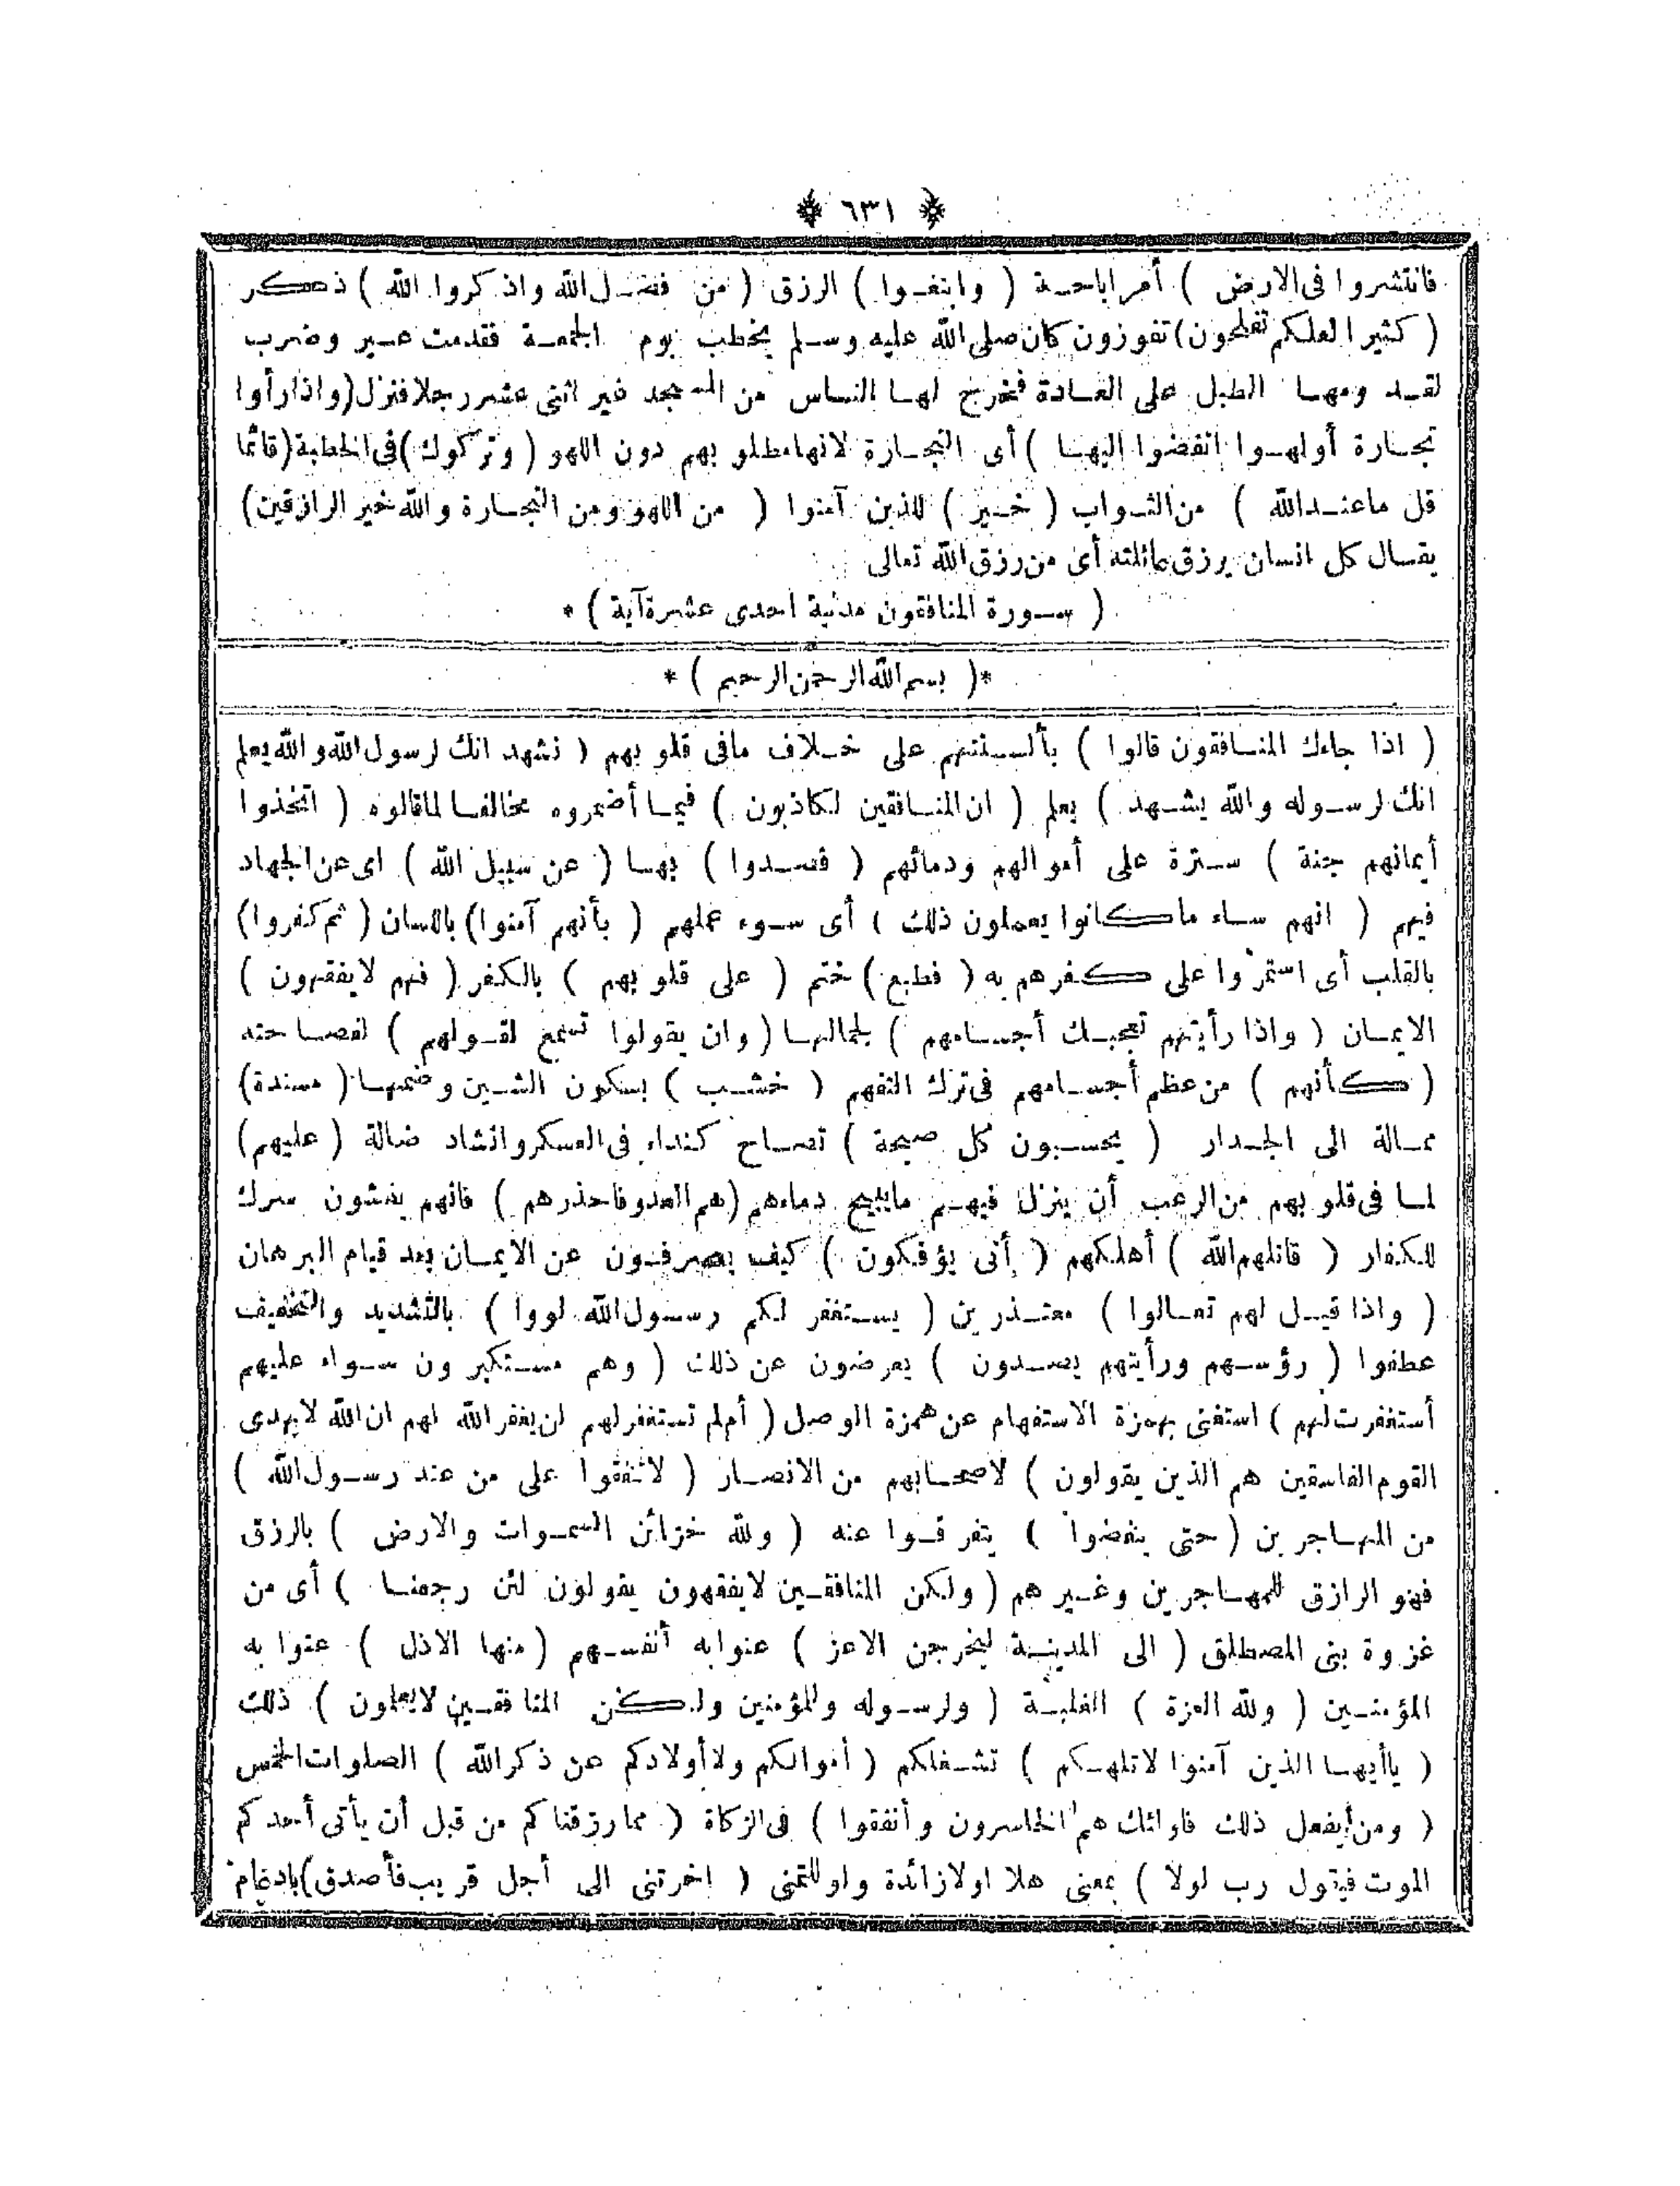 ٦٣١
فانتشروا فى الارض ) أمر اباحة ( وابتغوا ) الرزق ( من فضل الله واذكروا الله ) ذكر
( كثيرا لعلكم تفلحون ) تفوزون كان صلى الله عليه وسلم يخطب يوم الجمعة فقدمت عير وضرب
لقدومها الطبل على العادة فخرج لها الناس من المسجد غير اثنى عشر رجلا فنزل ( واذا رأوا
تجارة أولهوا انفضوا اليها ) أى التجارة لانها مطلوبهم دون اللهو ( وتركوك ) فى الخطبة ( قائما
قل ما عند الله ) من الثواب ( خير ) للذين آمنوا ( من اللهو ومن التجارة والله خير الرازقين )
يقال كل انسان يرزق عائلته أى من رزق الله تعالى
( سورة المنافقون مدنية احدى عشرة آية ) *
*( بسم الله الرحمن الرحيم ) *
( اذا جاءك المنافقون قالوا ) بألسنتهم على خلاف مافى قلوبهم ( نشهد انك لرسول الله والله يعلم
انك لرسوله والله يشهد ) يعلم ( ان المنافقين لكاذبون ) فيما أضمروه مخالفا لما قالوه ( اتخذوا
أيمانهم جنة ) سترة على أموالهم ودمائهم ( فصدوا ) بها ( عن سبيل الله ) اى عن الجهاد
فيهم ( انهم ساء ما كانوا يعملون ذلك ) أى سوء عملهم ( بأنهم آمنوا ) باللسان ( ثم كفروا )
بالقلب أى استمروا على كفرهم به ( فطبع ) ختم ( على قلوبهم ) بالكفر ( فهم لا يفقهون )
الايمان ( واذا رأيتهم تعجبك أجسامهم ) لجمالها ( وان يقولوا تسمع لقولهم ) لفصاحته
( كأنهم ) من عظم أجسامهم فى ترك التفهم ( خشب ) بسكون الشين وضمها ( مسندة )
ممالة الى الجدار ( يحسبون كل صيحة ) تصاح كنداء فى العسكر وانشاد ضالة ( عليهم )
لما فى قلوبهم من الرعب أن ينزل فيهم مايبيح دماءهم ( هم العدو فاحذرهم ) فانهم يفشون سرك
للكفار ( قاتلهم الله ) أهلكهم ( أنى يؤفكون ) كيف يصرفون عن الايمان بعد قيام البرهان
( واذا قيل لهم تعالوا ) معتذرين ( يستغفر لكم رسول الله لووا ) بالتشديد والتخفيف
عطفوا ( رؤسهم ورأيتهم يصدون ) يعرضون عن ذلك ( وهم مستكبرون سواء عليهم
أستغفرت لهم ) استغنى بهمزة الاستفهام عن همزة الوصل ( أم لم تستغفر لهم لن يغفر الله لهم ان الله لا يهدى
القوم الفاسقين هم الذين يقولون ) لاصحابهم من الانصار ( لا تنفقوا على من عند رسول الله )
من المهاجرين ( حتى ينفضوا ) يتفرقوا عنه ( ولله خزائن السموات والارض ) بالرزق
فهو الرازق للمهاجرين وغيرهم ( ولكن المنافقين لا يفقهون يقولون لئن رجعنا ) أى من
غزوة بنى المصطلق ( الى المدينة ليخرجن الاعز ) عنوا به أنفسهم ( منها الاذل ) عنوا به
المؤمنين ( ولله العزة ) الغلبة ( ولرسوله وللمؤمنين ولكن المنافقين لا يعلمون ) ذلك
( ياأيها الذين آمنوا لا تلهكم ) تشغلكم ( أموالكم ولا أولادكم عن ذكر الله ) الصلوات الخمس
( ومن يفعل ذلك فاولئك هم الخاسرون وأنفقوا ) فى الزكاة ( مما رزقناكم من قبل أن يأتى أحدكم
الموت فيقول رب لولا ) بمعنى هلا اولا زائدة ولو للتمنى ( اخرتنى الى أجل قريب فأصدق ) بادغام